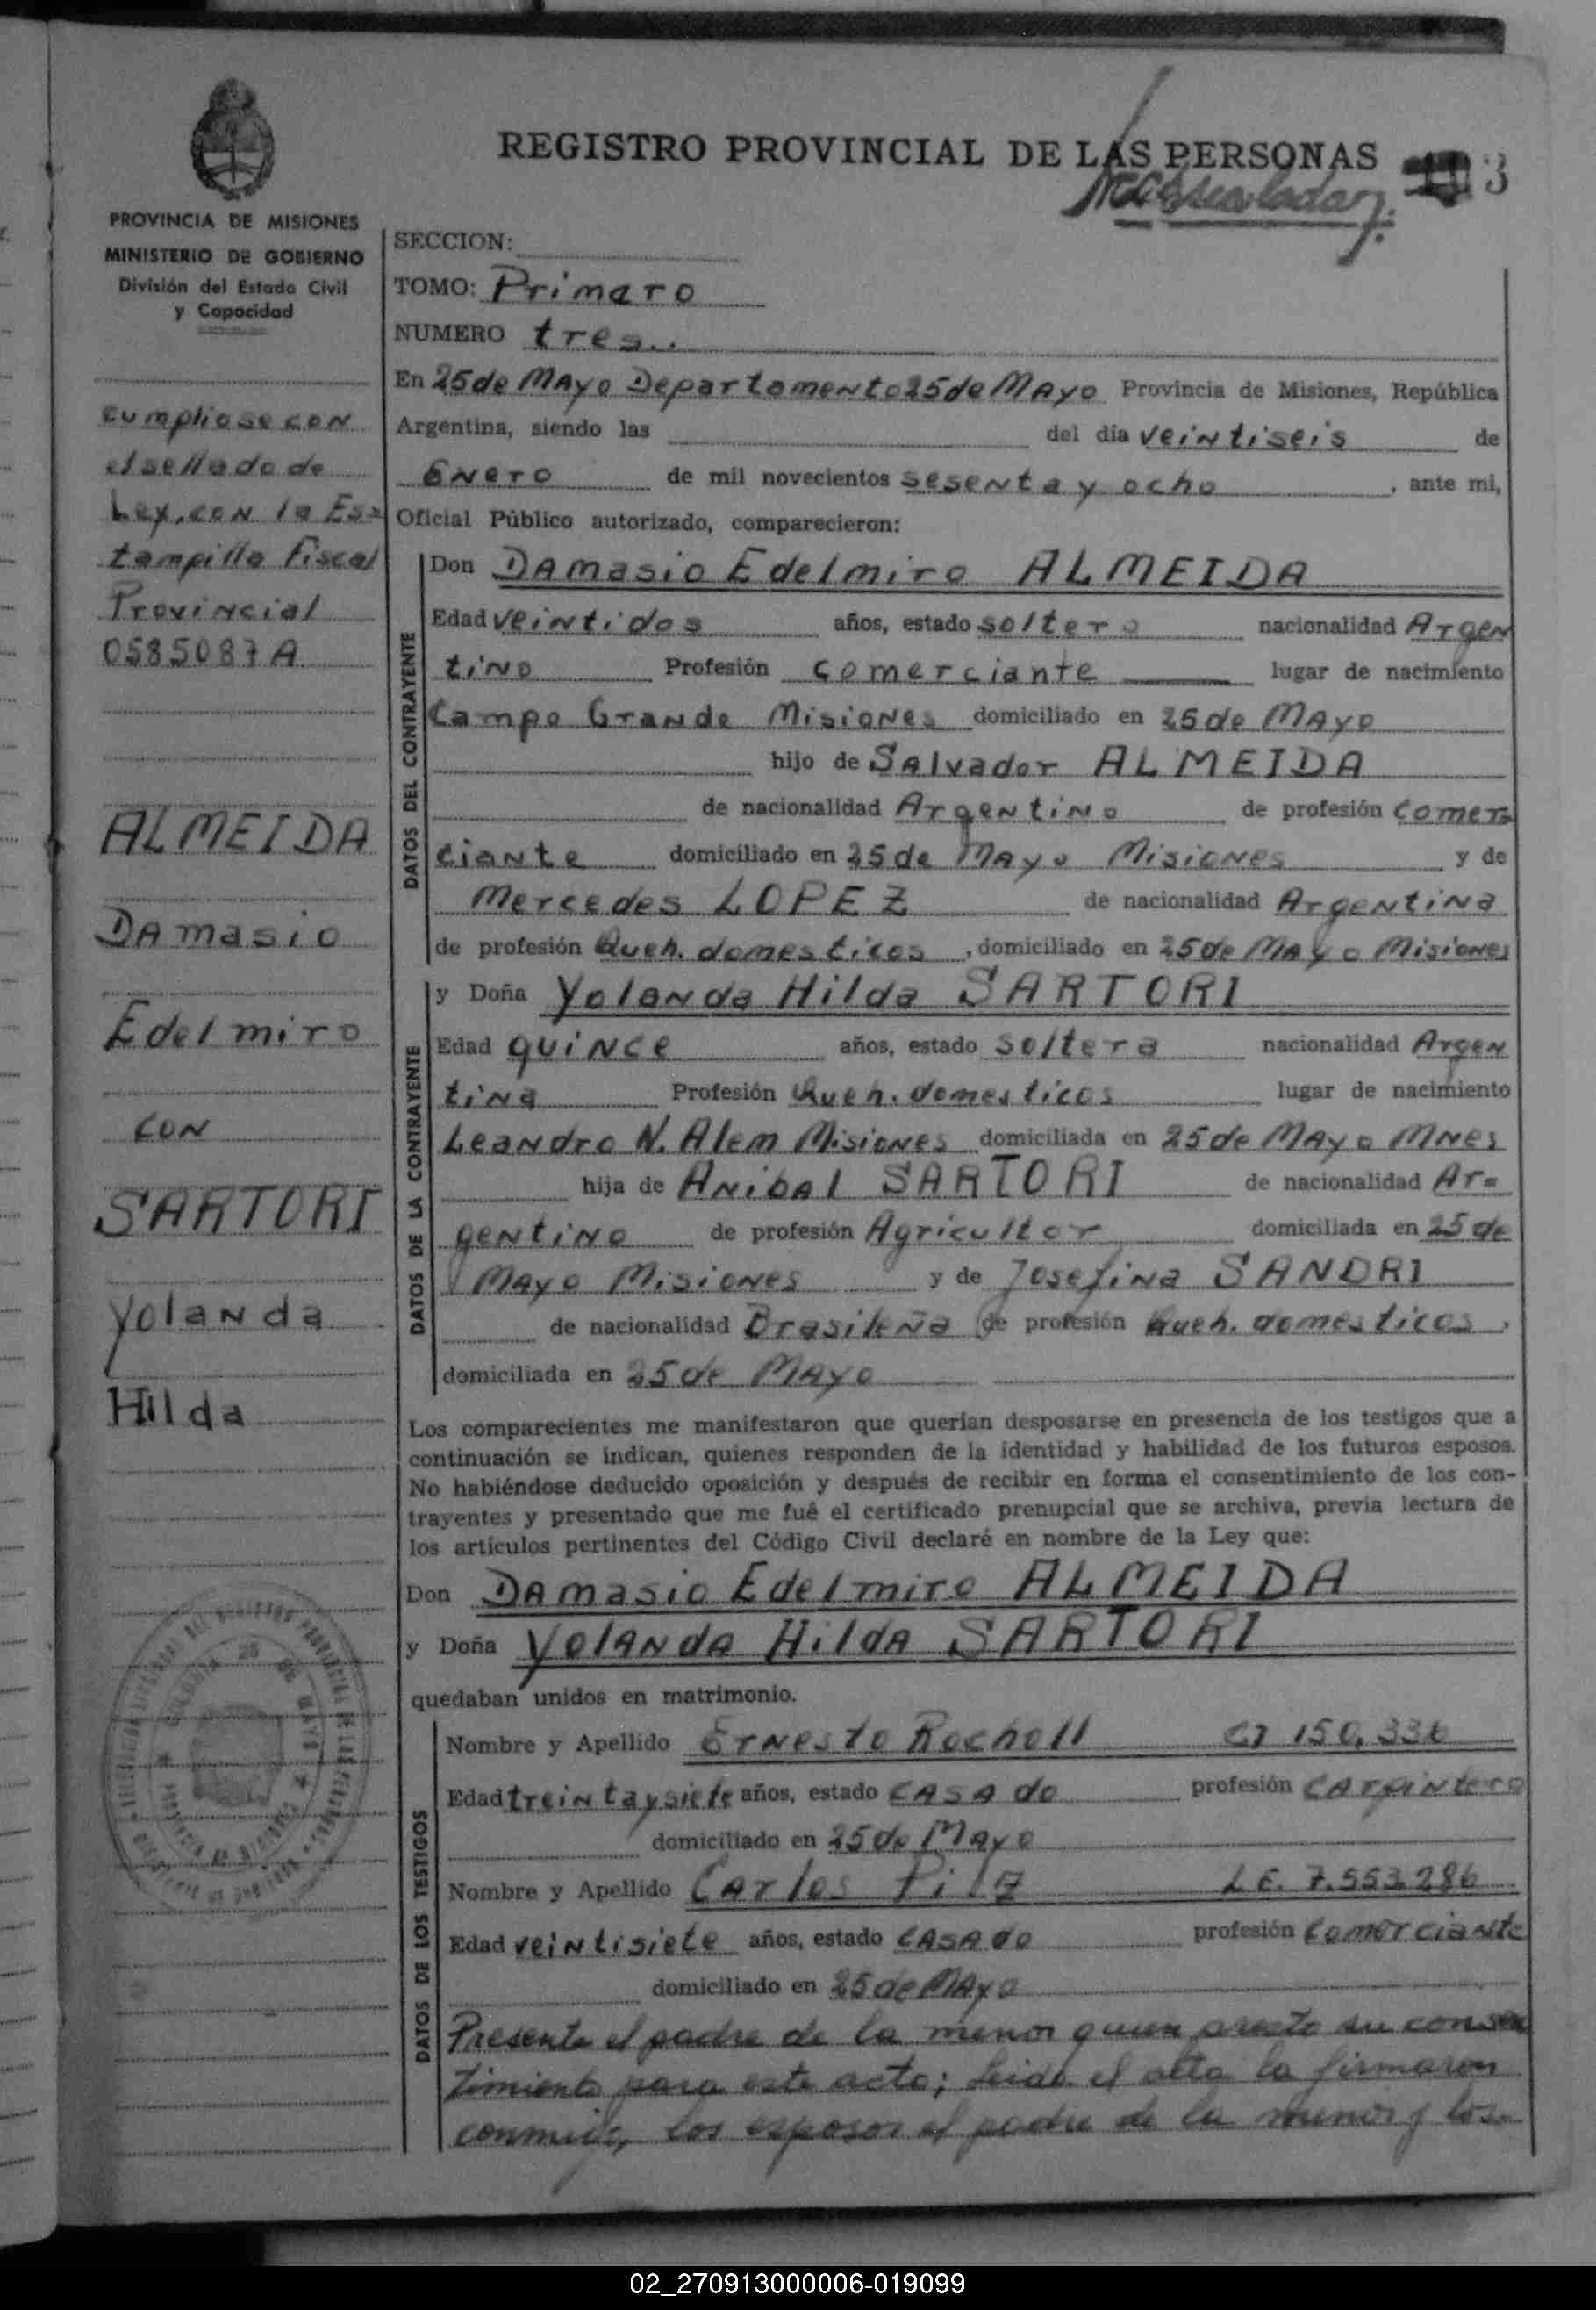 REGISTRO PROVINCIAL DE LAS PERSONAS
3
PROVINCIA DE MISIONES
MINISTERIO DE GOBIERNO
División del Estado Civil
y Capacidad
cumpliose con
el sellado de
Ley, con la Es=
tampilla Fiscal
Provincial
0585087 A
ALMEIDA
DAmasio
Edelmiro
con
SARTORI
Yolanda
Hilda
SECCION:
TOMO: Primero
NUMERO tres..
En 25 de MAyo Departamento 25 de MAyo Provincia de Misiones, República
Argentina, siendo las del día veintiseis de
Enero de mil novecientos sesenta y ocho , ante mi,
Oficial Público autorizado, comparecieron:
DATOS DEL CONTRAYENTE
Don DAmasio Edelmiro ALMEIDA
Edad veintidos años, estado soltero nacionalidad Argen
tino Profesión comerciante lugar de nacimiento
Campo Grande Misiones domiciliado en 25 de MAyo
hijo de SAlvador ALMEIDA
de nacionalidad Argentino de profesión comer=
ciante domiciliado en 25 de MAyo Misiones y de
Mercedes LOPEZ de nacionalidad Argentina
de profesión Queh. domesticos , domiciliado en 25 de MAyo Misiones
DATOS DE LA CONTRAYENTE
y Doña Yolanda Hilda SARTORI
Edad quince años, estado soltera nacionalidad Argen
tina Profesión Queh. domesticos lugar de nacimiento
Leandro N. Alem Misiones domiciliada en 25 de MAyo MNes
hija de Anibal SARTORI de nacionalidad Ar=
gentino de profesión Agricultor domiciliada en 25 de
MAyo Misiones y de Josefina SANDRI
de nacionalidad Brasileña de profesión Queh. domesticos ,
domiciliada en 25 de MAyo
Los comparecientes me manifestaron que querían desposarse en presencia de los testigos que a
continuación se indican, quienes responden de la identidad y habilidad de los futuros esposos.
No habiéndose deducido oposición y después de recibir en forma el consentimiento de los con-
trayentes y presentado que me fué el certificado prenupcial que se archiva, previa lectura de
los artículos pertinentes del Código Civil declaré en nombre de la Ley que:
Don DAmasio Edelmiro ALMEIDA
y Doña YolANdA HildA SARTORI
quedaban unidos en matrimonio.
DATOS DE LOS TESTIGOS
Nombre y Apellido Ernesto Rocholl CI 150,336
Edad treintaysiete años, estado CASAdo profesión CArpintero
domiciliado en 25 de MAyo
Nombre y Apellido CArlos Pilz L E. 7.553.286
Edad veintisiete años, estado CASAdo profesión Comerciante
domiciliado en 25 de MAyo
Presente el padre de la menor quien presto su consen
timiento para este acto; leida el acta la firmaron
conmigo, los esposos el padre de la menor y los
02_270913000006-019099